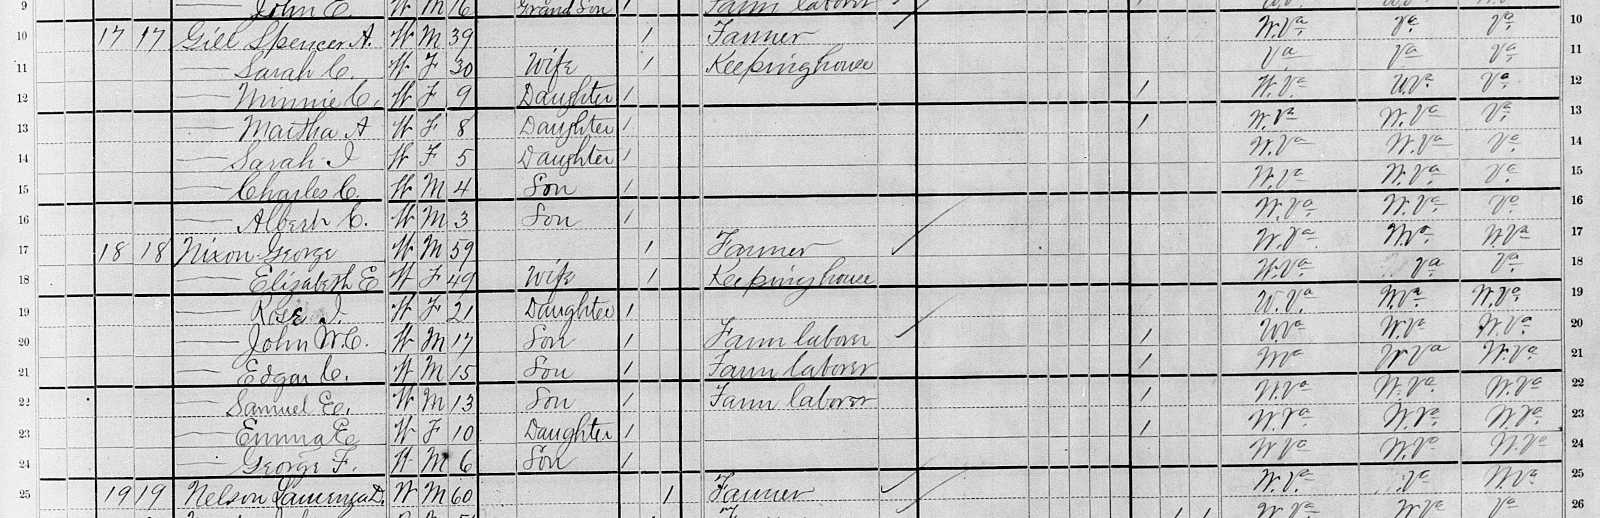 9 John E. W M 16 Grand Son 1 Farm laborer 1
10 17 17 Gill Spencer A. W M 39 1 Farmer W. Va Va Va 10
11 Sarah C. W F 30 Wife 1 Keeping house Va Va Va 11
12 Minnie C. W F 9 Daughter 1 1 W. Va W. Va Va 12
13 Martha A W F 8 Daughter 1 1 W. Va W. Va Va 13
14 Sarah J W F 5 Daughter 1 W. Va W. Va Va 14
15 Charles C. W M 4 Son 1 W. Va W. Va Va 15
16 Albert C. W M 3 Son 1 W. Va W. Va Va 16
17 18 18 Nixon George W M 59 1 Farmer W. Va Va W. Va 17
18 Elizabeth E W F 49 Wife 1 Keeping house W. Va Va Va 18
19 Rose J. W F 21 Daughter 1 W. Va W. Va W. Va 19
20 John W. C. W M 17 Son 1 Farm laborer 1 W. Va W. Va W. Va 20
21 Edgar C. W M 15 Son 1 Farm laborer 1 W. Va W. Va 21
22 Samuel E. W M 13 Son 1 Farm laborer 1 W. Va W. Va W. Va 22
23 Emma E W F 10 Daughter 1 1 W. Va W. Va W. Va 23
24 George F. W M 6 Son 1 W. Va W. Va W. Va 24
25 19 19 Nelson D. W M 60 1 Farmer W. Va Va W. Va 25
W. Va W. Va Va 26